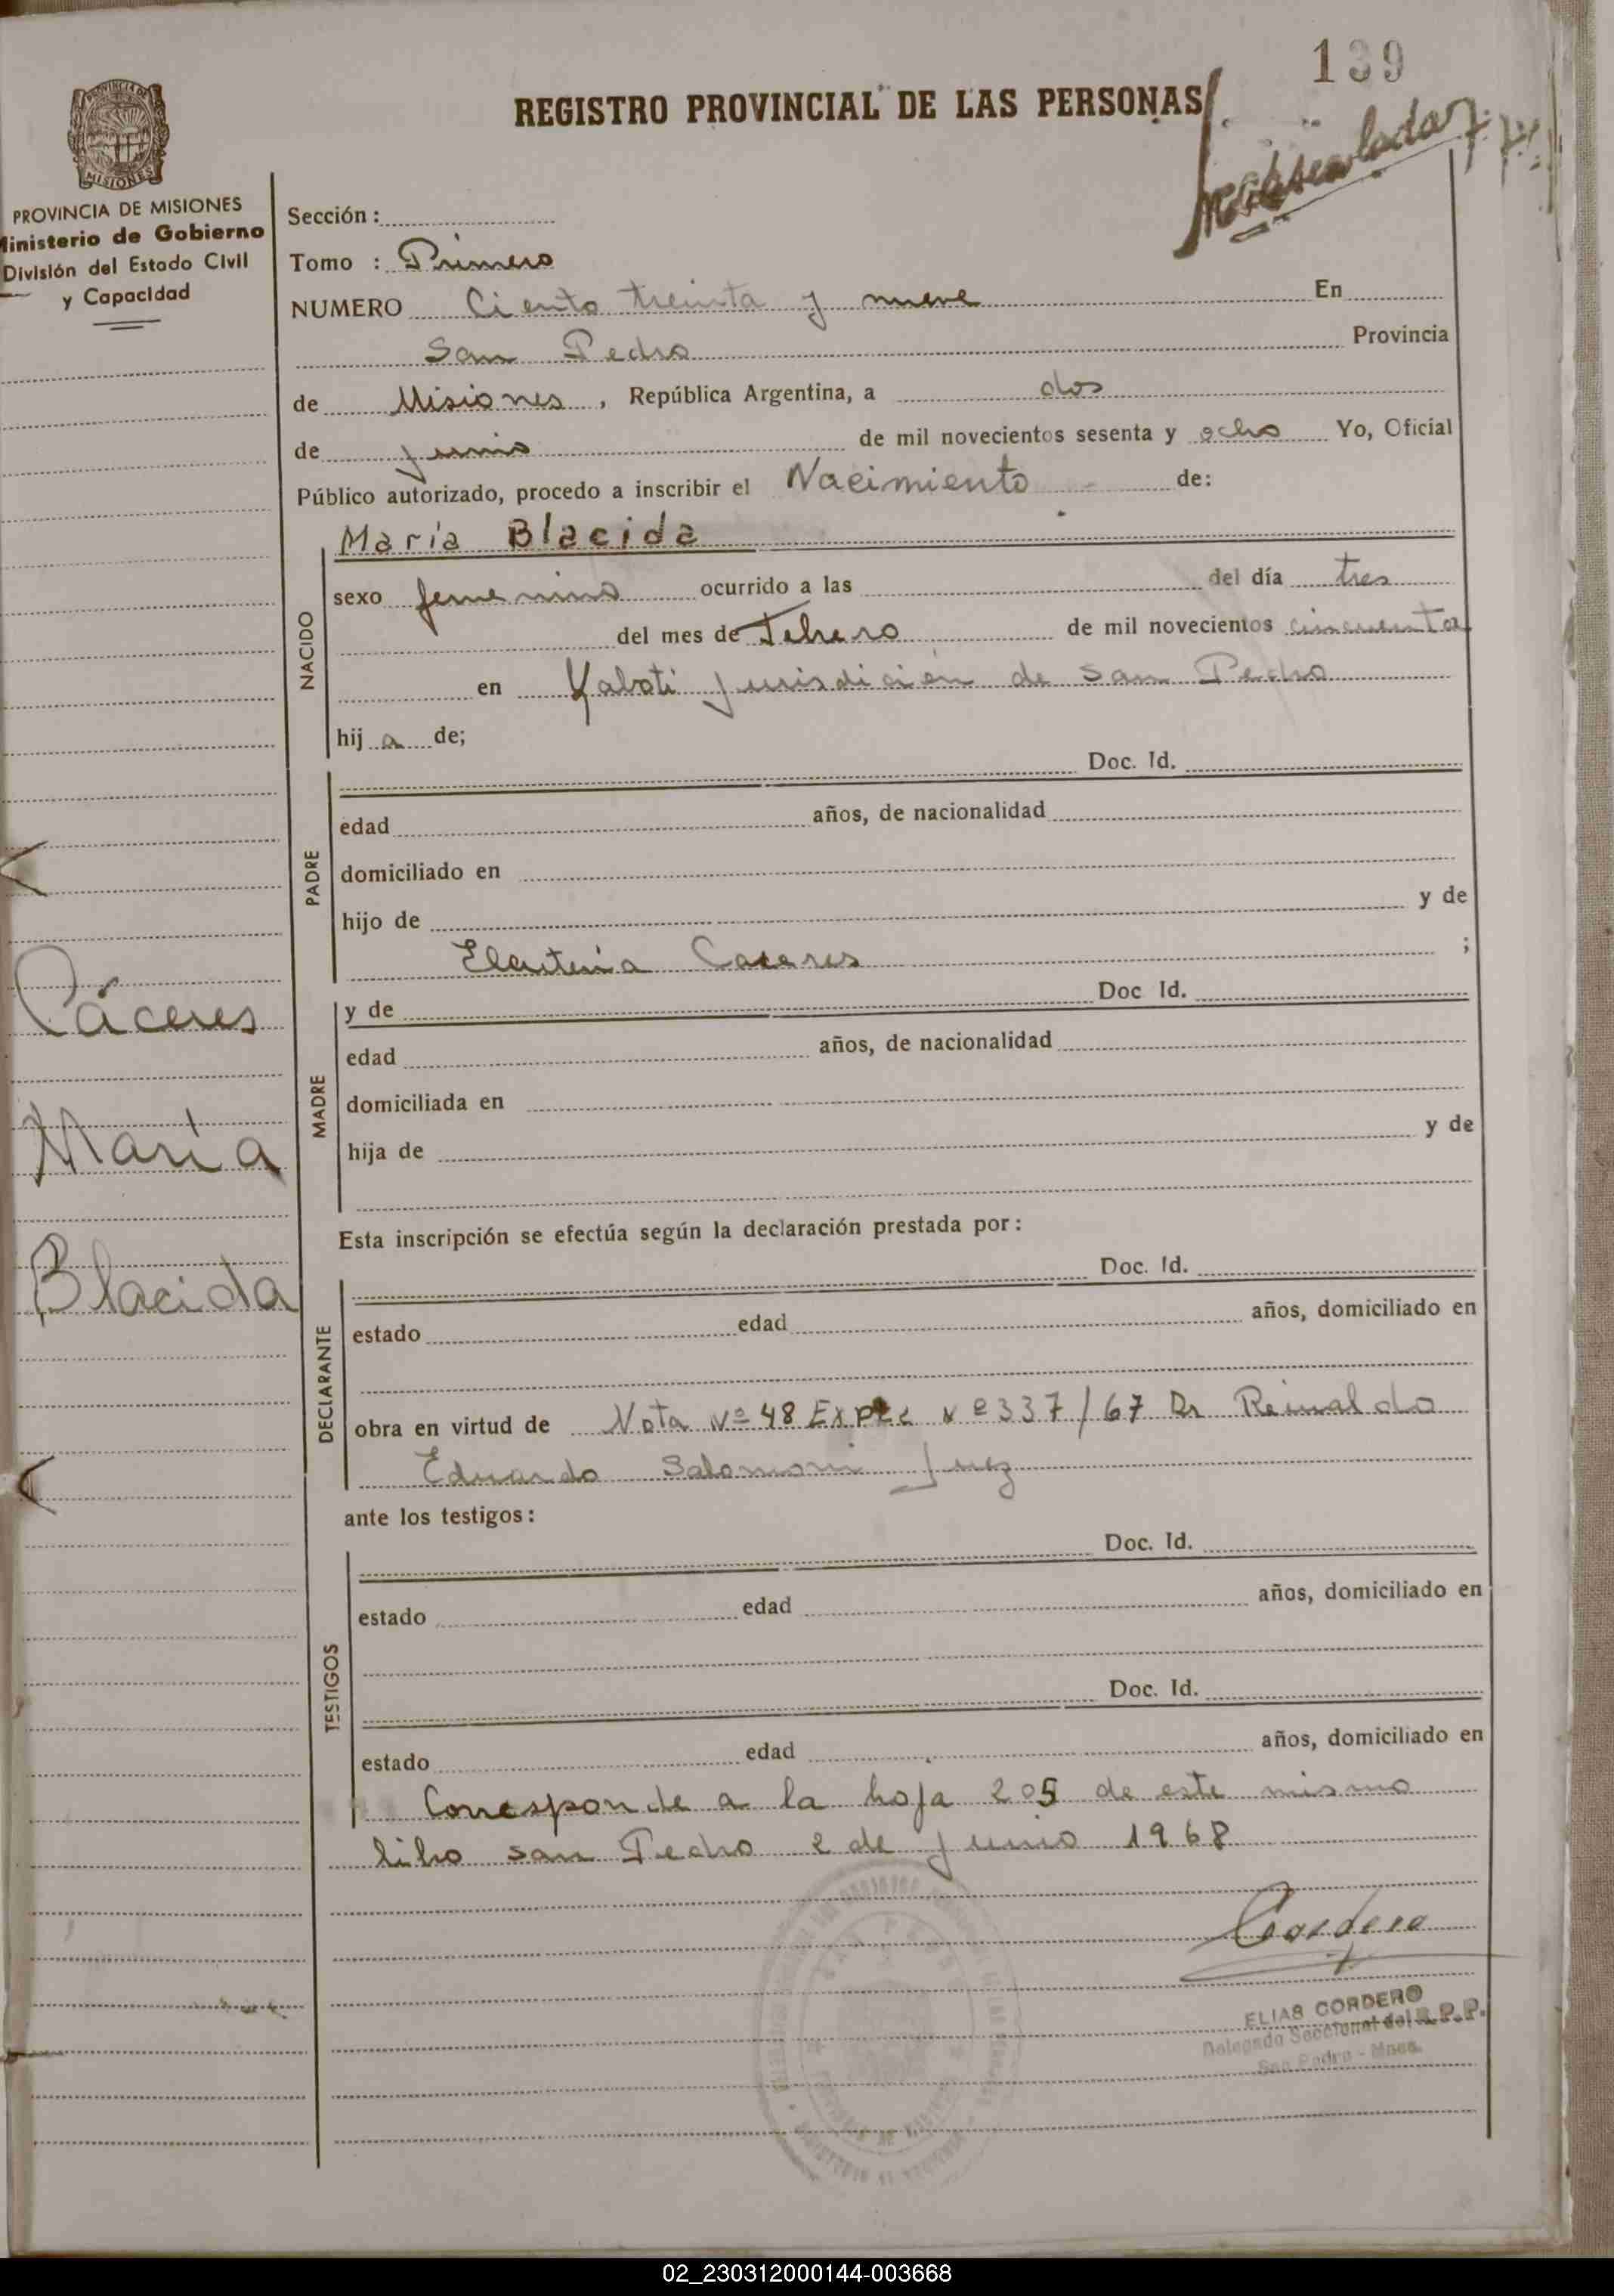 139
REGISTRO PROVINCIAL DE LAS PERSONAS
PROVINCIA DE MISIONES
Ministerio de Gobierno
División del Estado Civil
y Capacidad
Sección :
Tomo : Primero
NUMERO Ciento treinta y nueve En
San Pedro Provincia
de Misiones, República Argentina, a dos
de junio de mil novecientos sesenta y ocho Yo, Oficial
Público autorizado, procedo a inscribir el Nacimiento de:
María Blacida
NACIDO
sexo femenino ocurrido a las del día tres
del mes de Febrero de mil novecientos cincuenta
en Yaboti jurisdicién de San Pedro
hij a de;
PADRE
Doc. Id.
edad años, de nacionalidad
domiciliado en
hijo de y de
Eleuteria Caceres ;
MADRE
y de Doc Id.
edad años, de nacionalidad
domiciliada en
hija de y de
Cáceres
María
Blacida
Esta inscripción se efectúa según la declaración prestada por :
DECLARANTE
Doc. Id.
estado edad años, domiciliado en
obra en virtud de Nota Nº 48 Expte Nº 337/67 Dr Reinaldo
Eduardo Salomoni Juez
ante los testigos :
TESTIGOS
Doc. Id.
estado edad años, domiciliado en
Doc. Id.
estado edad años, domiciliado en
Corresponde a la hoja 205 de este mismo
libro San Pedro 2 de junio 1968
Cordero
ELIAS CORDERO
Delegado Seccional del R.P.P.
San Pedro - Mnes.
02_230312000144-003668